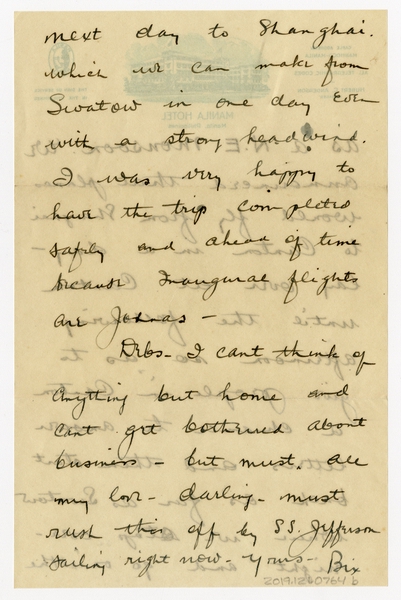 next day to Shanghai.
which we can make from
Swatow in one day even
with a strong headwind.
I was very happy to
have the trip completed
safely and ahead of time
because Inaugural flights
are Jonahs –
Debs – I cant think of
anything but home and
cant get bothered about
business – but must. All
my love – darling – must
rush this off by S.S. Jefferson
sailing right now – yours – Bix
2019.1260764 b